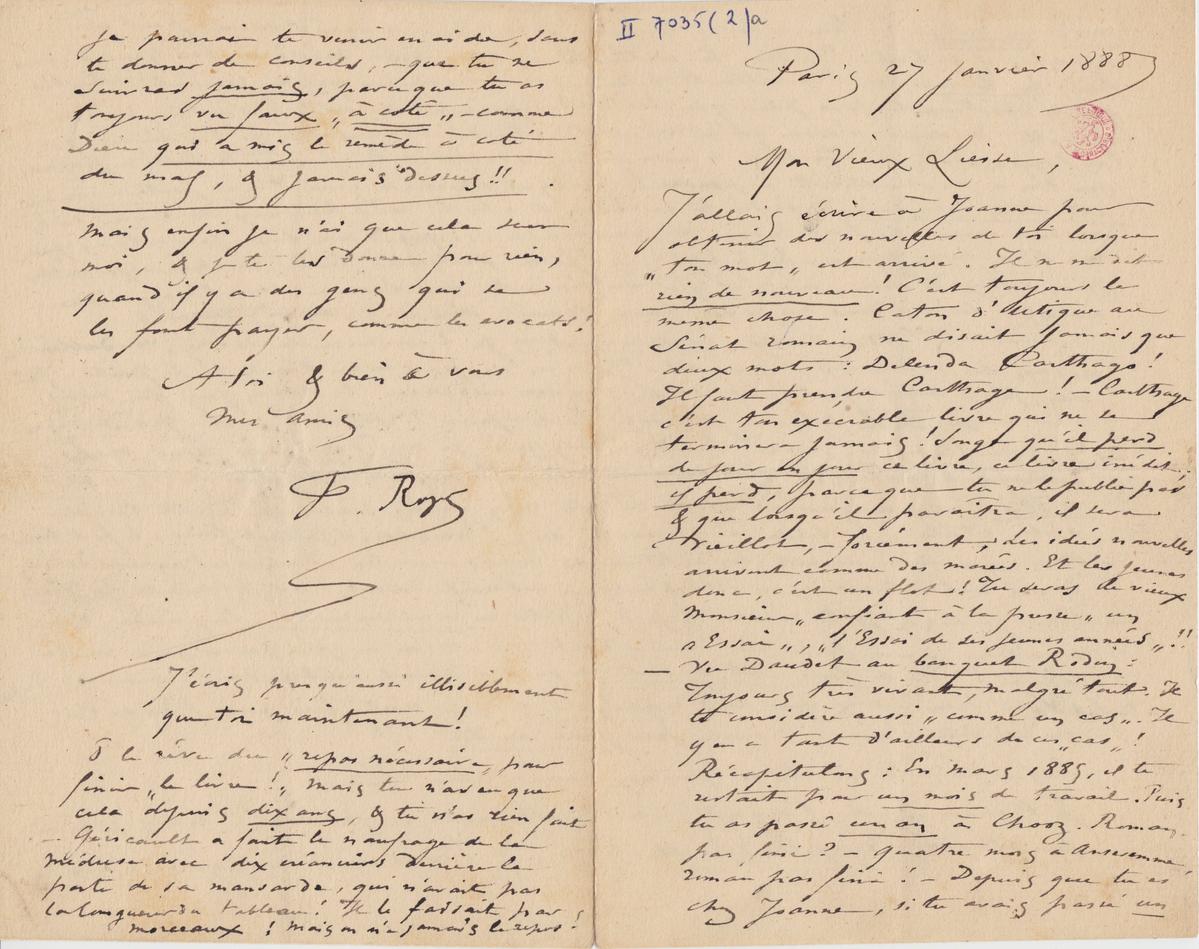 II 7035(2)a
Paris 27 janvier 1888
Mon Vieux Liesse,
J'allais écrire à Joanne pour
obtenir des nouvelles de toi lorsque
„ton mot„ est arrivé. Il ne me dit
rien de nouveau! C'est toujours la
même chose. Caton d'Utique au
Sénat romain ne disait jamais que
deux mots : Delenda Carthago!
Il faut prendre Carthage! – Carthage
c'est ton exécrable livre qui ne se
terminera jamais! Songe qu'il perd
de jour en jour ce livre, ce livre inédit;
il perd, parceque tu ne le publie pas
& que lorsqu'il paraîtra, il sera
vieillot, – forcément, les idées nouvelles
arrivent comme des marées. Et les jeunes
donc, c'est un flot! Tu seras le vieux
Monsieur „confiant à la presse„ un
„Essai„, „l'Essai de ses jeunes années„!!
– Vu Daudet au banquet Rodin:
Toujours très vivant, malgré tout. Il
te considère aussi „comme un cas„. Il
y en a tant d'ailleurs de ces „cas„!
Récapitulons: En mars 1885, il te
restait pour un mois de travail. Puis
tu as passé un an à Chooz. Roman
pas fini? – quatre mois à Anseremme,
roman pas fini! – Depuis que tu es
chez Joanne, si tu avais passé un
je pourrai te venir en aide, sans
te donner de conseils, – que tu ne
suivras jamais, parceque tu as
toujours vu faux „à côté„ – comme
Dieu qui a mis le remède à côté
du mal, & jamais dessus!!
Mais enfin je n'ai que cela sur
moi, & je te les donne pour rien,
quand il y a des gens qui se
les font payer, comme les avocats!
A toi & bien à vous
mes amis
F. Rops
J'écris presqu'aussi illisiblement
que toi maintenant!
O le rêve du „repos nécessaire„ pour
finir „le livre!„ Mais tu n'as eu que
cela depuis dix ans, & tu n'as rien fait
– Géricault a fait le naufrage de la
méduse avec dix créanciers derrière la
porte de sa mansarde, qui n'avait pas
la longueur du tableau! Il le faisait par
morceaux! Mais on n'a jamais le repos!